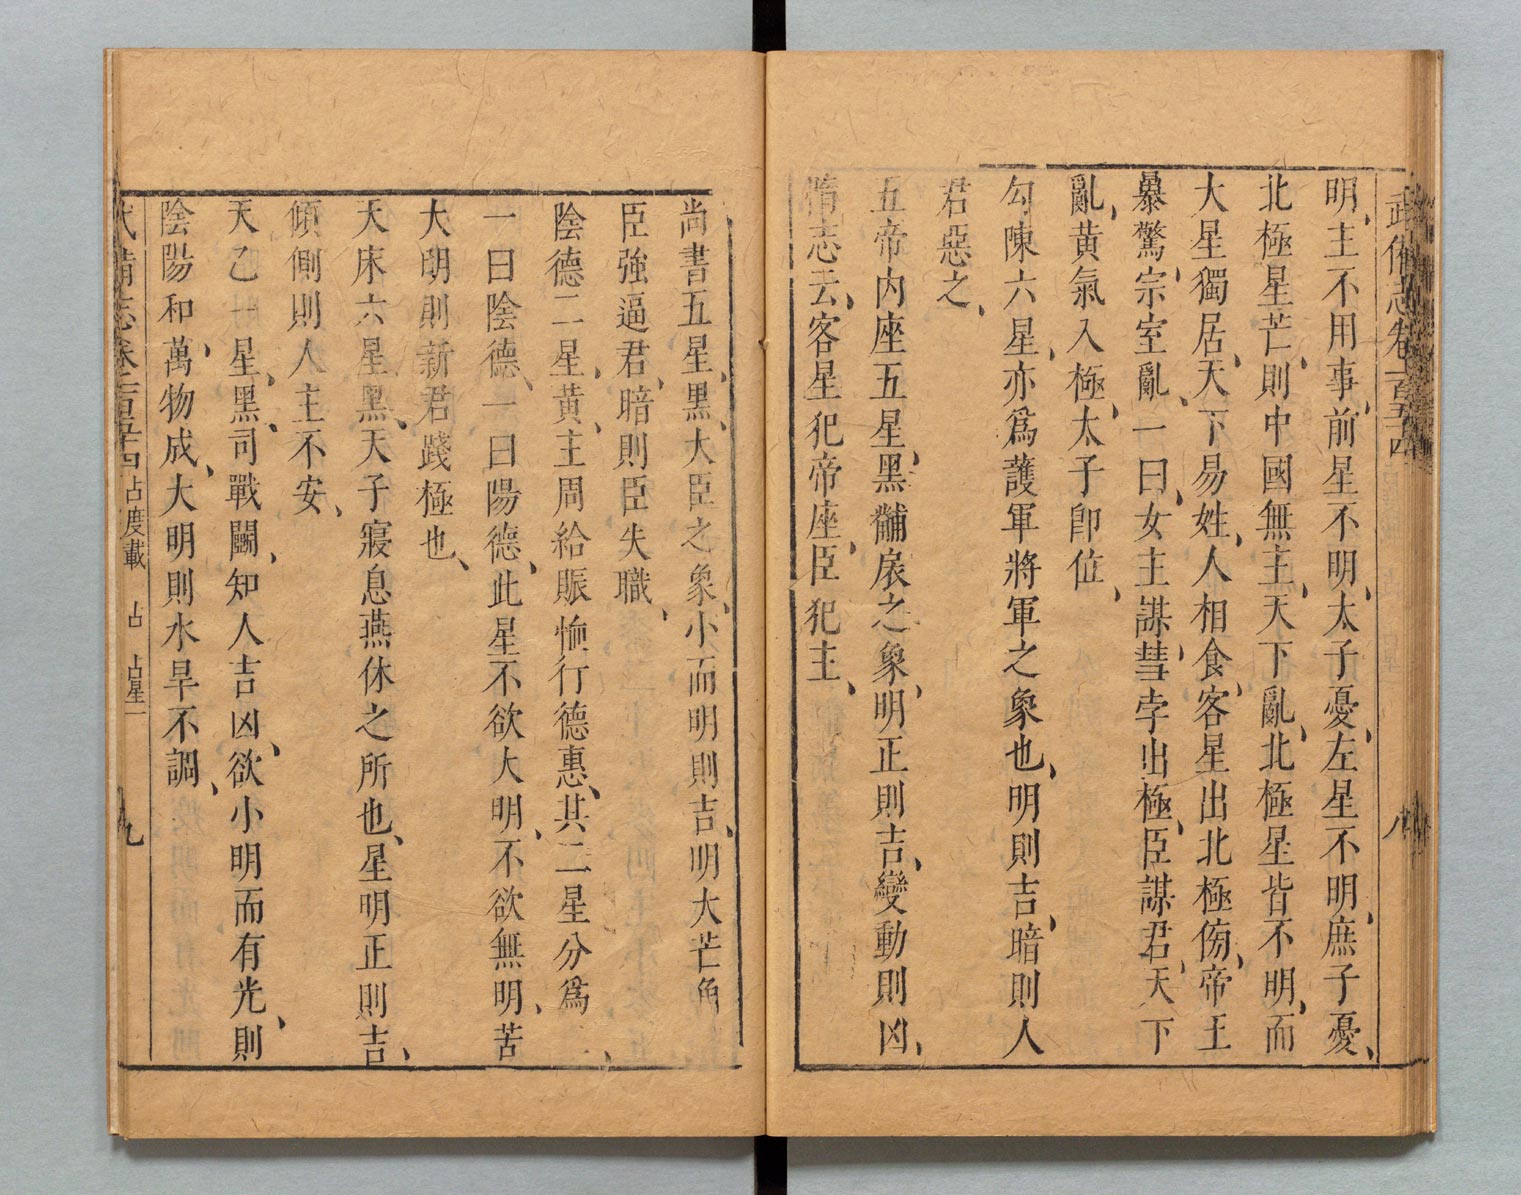 武備志卷一百五十四 八
明、主不用事、前星不明、太子憂、左星不明、庶子憂、
北極星芒、則中國無主、天下亂、北極星皆不明、而
大星獨居、天下易姓、人相食、客星出北極傍、帝王
暴驚、宗室亂、一曰、女主謀、彗孛出極、臣謀君、天下
亂、黄氣入極、太子卽位、
勾陳六星、亦爲護軍將軍之象也、明則吉、暗則人
君惡之、
五帝内座五星、黑、黼扆之象、明正則吉、變動則凶、
隋志云、客星犯帝座、臣犯主、
尚書五星、黒、大臣之象、小而明則吉、明大芒角
臣強逼君、暗則臣失職、
陰德二星、黄、主周給賑恤行德惠、其二星分爲
一曰陰德、一曰陽德、此星不欲大明、不欲無明、苦
大明則新君踐極也、
天床六星、黑、天子寢息燕休之所也、星明正則吉、
傾側則人主不安、
天乙一星、黑、司戰鬭、知人吉凶、欲小明而有光、則
陰陽和、萬物成、大明則水旱不調、
武備志卷一百五十四 占度載 占 占星二 九